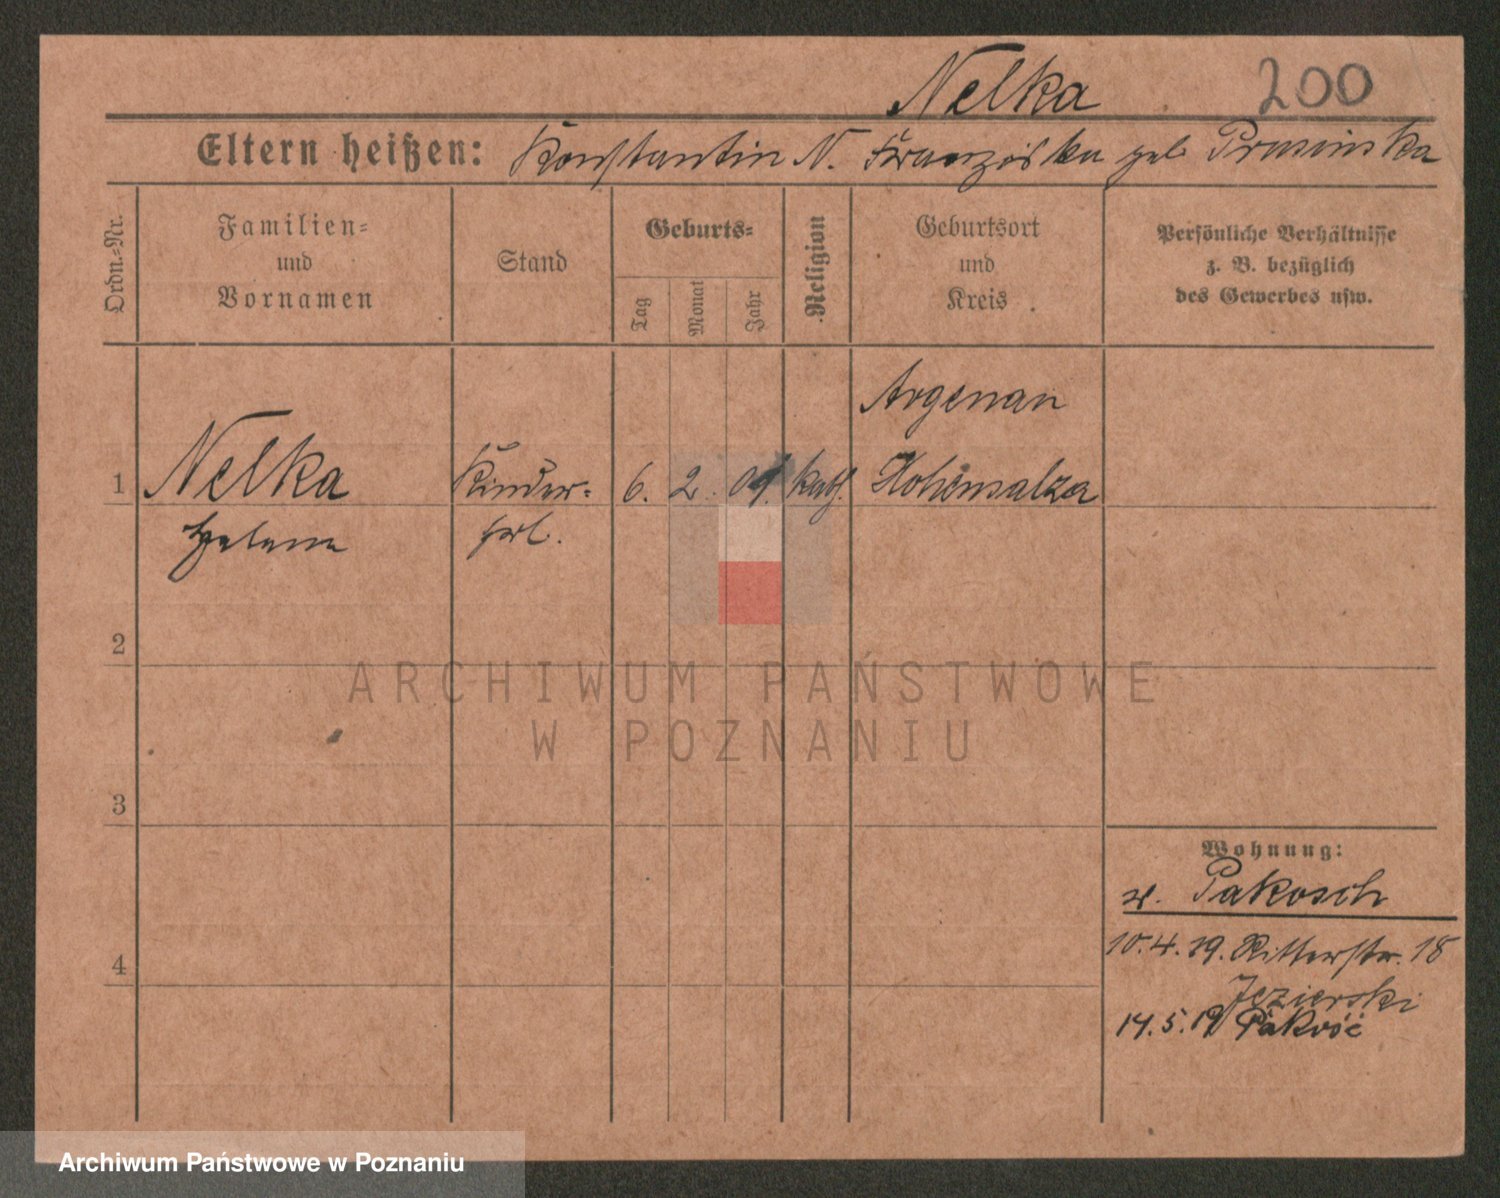 Nelka 200
Eltern heißen: Konstantin N. Franziska geb Prusinska
Ordn.-Nr.
Familien-
und
Vornamen
Stand
Geburts-
Tag
Monat
Jahr
Religion
Geburtsort
und
Kreis
Persönliche Verhältnisse
z. B. bezüglich
des Gewerbes usw.
Argenau
1 Nelka Kinder- 6. 2. 01. kath. Hohensalza
Helena frl.
2
ARCHIWUM PAŃSTWOWE
W POZNANIU
3
Wohnung:
v. Pakosch
4
10.4.19. Ritterstr. 18
Jezierski
14.5.19 Pakość
Archiwum Państwowe w Poznaniu